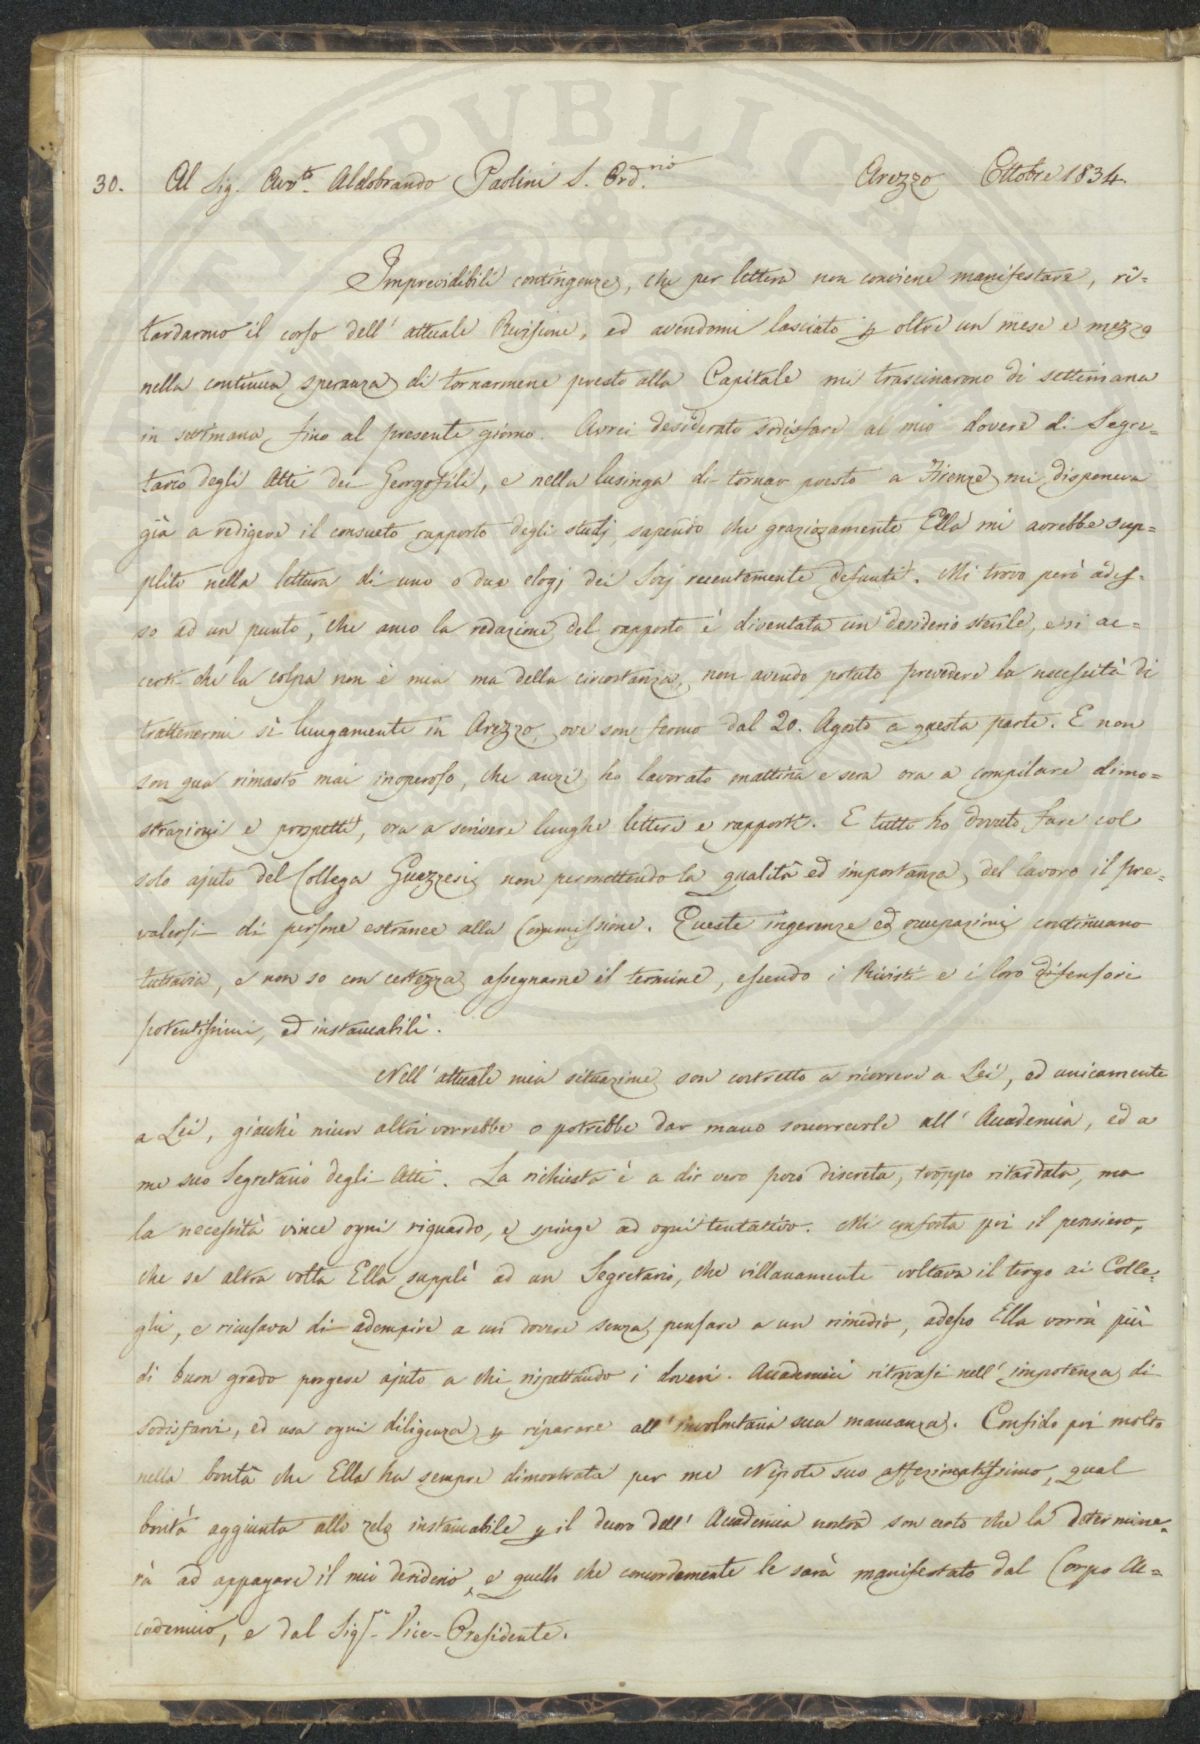 30. Al Sig. Avv.to Aldobrando Paolini S. Ord.rio Arezzo Ottobre 1834.
Imprevidibili contingenze, che per lettera non conviene manifestare, ri=
tardarono il corso dell' attuale Revisione, ed avendomi lasciato p oltre un mese e mezzo
nella continua speranza di tornarmene presto alla Capitale mi trascinarono di settimana
in settimana, fino al presente giorno. Avrei desiderato sodisfare al mio dovere di Segre=
tario degli Atti dei Georgofili, e nella lusinga di tornar presto a Firenze mi disponeva
già a redigere il consueto rapporto degli studj, sapendo che graziosamente Ella mi avrebbe sup=
plito nella lettura di uno o due elogj dei Socj recentemente defunti. Mi trovo però ades=
so ad un punto, che anco la redazione del rapporto è diventata un desiderio sterile, e si ac=
certi che la colpa non è mia ma della circostanza, non avendo potuto prevedere la necessità di
trattenermi sì lungamente in Arezzo, ove son fermo dal 20. Agosto a questa parte. E non
son qua rimasto mai inoperoso, che anzi ho lavorato mattina e sera ora a compilare dimo=
strazioni e prospetti, ora a scrivere lunghe lettere e rapporti. E tutto ho dovuto fare col
solo ajuto del Collega Guazzesi, non permettendo la qualità ed importanza del lavoro il pre=
valersi di persone estranee alla Commissione. Queste ingerenze ed occupazioni continuano
tuttavia, e non so con certezza assegnarne il termine, essendo i Rivisti e i loro difensori
potentissimi, ed instancabili.
Nell' attuale mia situazione son costretto a ricorrere a Lei, ed unicamente
a Lei, giacchè niun altri vorrebbe o potrebbe dar mano soccorrevole all' Accademia, ed a
me suo Segretario degli Atti. La richiesta è a dir vero poco discreta, troppo ritardata, ma
la necessità vince ogni riguardo, e spinge ad ogni tentativo. Mi conforta poi il pensiero,
che se altra volta Ella supplì ad un Segretario, che villanamente voltava il tergo ai Colle=
ghi, e ricusava di adempire a un dovere senza pensare a un rimedio, adesso Ella vorrà più
di buon grado porgere ajuto a chi rispettando i doveri Accademici ritrovasi nell' impotenza di
sodisfarvi, ed usa ogni diligenza p riparare all' involontaria sua mancanza. Confido poi molto
nella bontà che Ella ha sempre dimostrata per me Nipote suo affezionatissimo, qual
bontà aggiunta allo zelo instancabile p il decoro dell' Accademia nostra son certo che la determine=
rà ad appagare il mio desiderio, e quello che concordemente le sarà manifestato dal Corpo Ac=
cademico, e dal Sig.r Vice-Presidente.